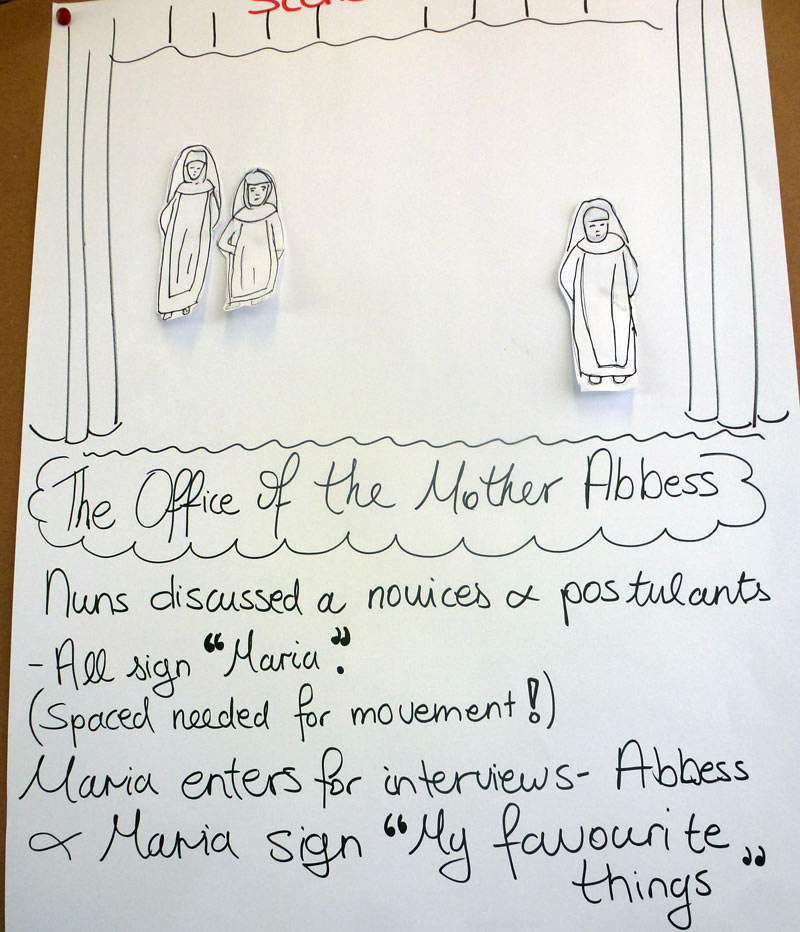 The Office of the Mother Abbess
Nuns discussed a novices & postulants
- All sign "Maria".
(Spaced needed for movement!)
Maria enters for interviews - Abbess
& Maria sign "My favourite
things"